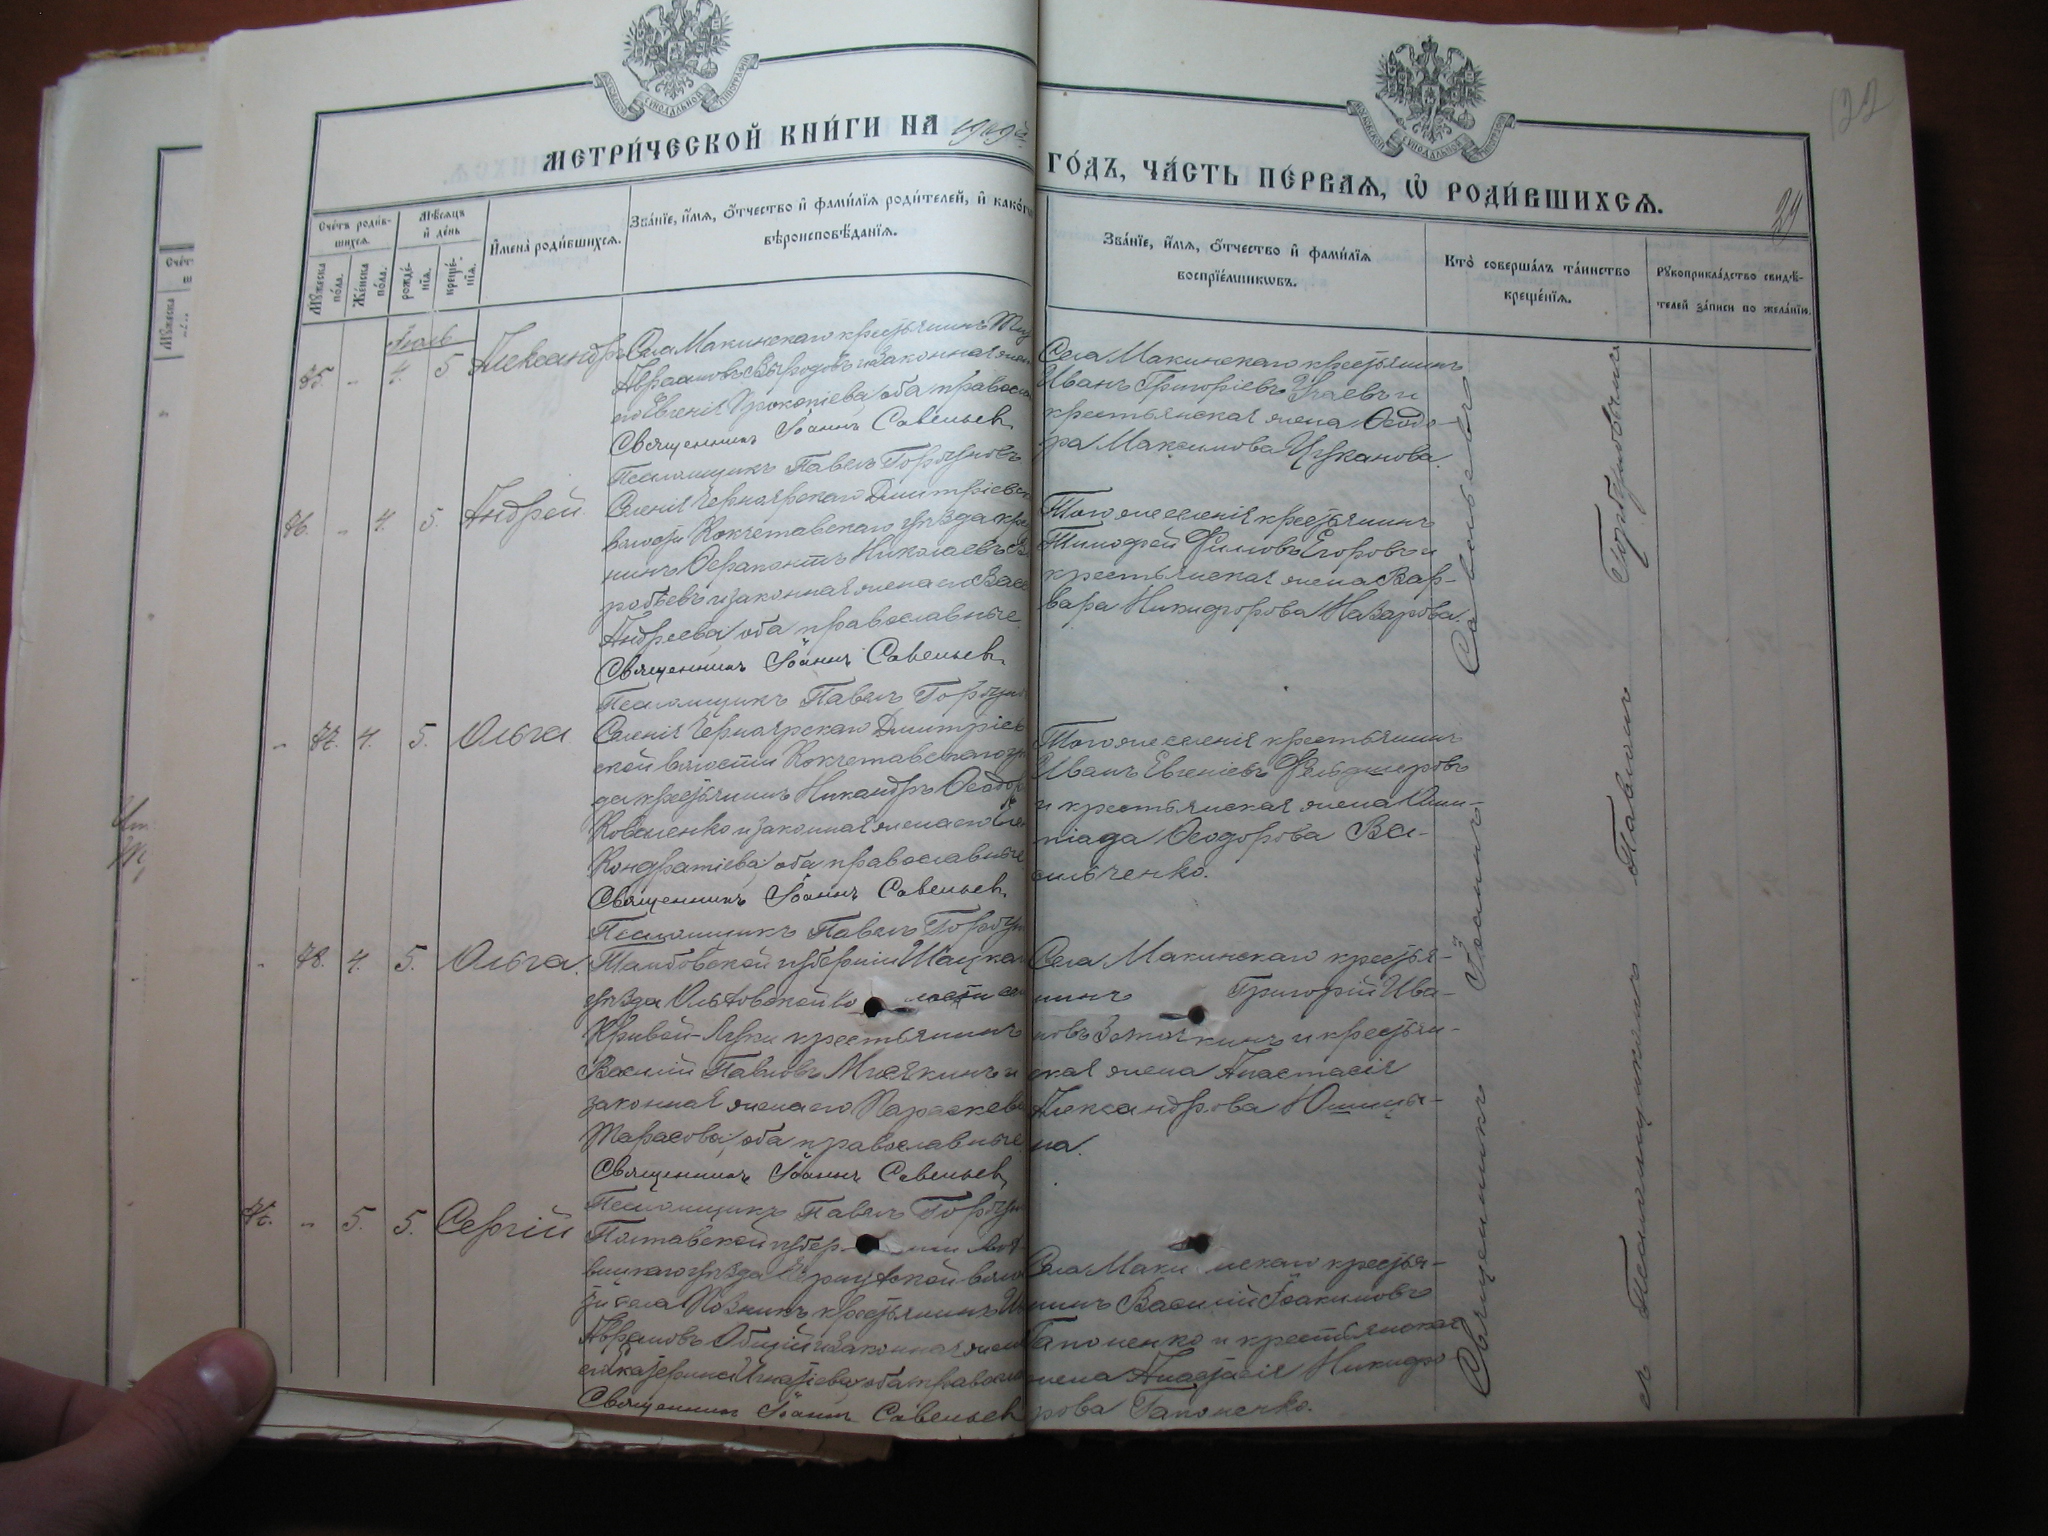 МЕТРИ́ЧЕСКОЙ КНИ́ГИ НА 1909й
ГО́ДЪ, ЧА́СТЬ ПЕ́РВАЯ, Ѡ҆ РОДИ́ВШИХСЯ.
122
29
Сче́тъ роди́в-
шихся.
Мѣ́сяцъ
и҆ де́нь
Мꙋ́жеска по́ла.
Же́нска по́ла.
рожде́-
нїѧ.
креще́-
нїѧ.
И҆мена̀ роди́вшихся.
Зва́нїе, и҆́мѧ, ѻ҆́тчество и҆ фами́лїѧ роди́телей, и҆ како́гѡ
вѣроисповѣ́данїѧ.
Зва́нїе, и҆́мѧ, ѻ҆́тчество и҆ фами́лїѧ
воспрїе́мникѡвъ.
Кто̀ соверша́лъ та́инство
креще́нїѧ.
Рꙋкоприкла́дство свидѣ́-
телей за́писи по жела́нїю.
4. 5 Александръ
Села Макинскаго крестьянинъ
Аврамовъ и законная жена
его Евгенія Прокопіева, оба православ
Священникъ Іоаннъ Савельевъ
Псаломщикъ Павелъ Горбуновъ
Села Макинскаго крестьянинъ
Иванъ Григоріевъ и
крестьянская жена Ѳеодо-
ра Максимова Цуканова.
76. - 4. 5. Андрей
Селенія Черноярскаго Дмитріевск
волости Кокчетавскаго уѣзда кре
нинъ Ѳерапонтъ Николаевъ
робьевъ и законная жена его Васс
Андреева, оба православные
Священникъ Іоаннъ Савельевъ
Псаломщикъ Павелъ Горбуно
Того же селенія крестьянинъ
Тимофей Егоровъ и
крестьянская жена Вар-
вара Никифорова Назарова.
- 77. 4. 5. Ольга
Селенія Черноярскаго Дмитріев
ской волости Кокчетавскаго уѣ
да крестьянинъ Никандръ Ѳеодор
Коваленко и законная жена его
Кондратіева, оба православные
Священникъ Іоаннъ Савельевъ
Псаломщикъ Павелъ Горбун
Того же селенія крестьянинъ
Иванъ Евгеніевъ Фельдшеровъ
и крестьянская жена Олим-
піада Ѳеодорова Ва-
сильченко.
- 78. 4. 5. Ольга.
Тамбовской губерніи Шацкаг
уѣзда Ольховской волости села
Кривой-Луки крестьянинъ
Василій Павловъ Мисякинъ и
законная жена его Параскева
Тарасова, оба православные
Священникъ Іоаннъ Савельевъ
Псаломщикъ Павелъ Горбун
Села Макинскаго крестья-
нинъ Григорій Ива-
новъ и крестьян-
ская жена Анастасія
Александрова Юшицы-
на.
- 5. 5. Сергій
Полтавской губерніи
уѣзда волос
ти села Позникъ крестьянинъ
Аврамовъ Общій и законная жена
его Екатерина Игнатіева, оба православ
Священникъ Іоаннъ Савельевъ
Села Макинскаго крестья-
нинъ Василій Іоакимовъ
Гапоненко и крестьянская
жена Анастасія Никифо-
рова Гапоненко.
Священникъ Іоаннъ Савельевъ
съ Псаломщикомъ Павломъ Горбуновымъ